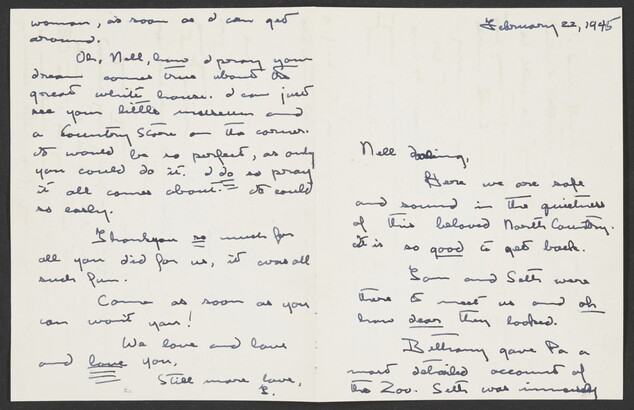 February 22, 1945
Nell darling,
Here we are safe
and sound in the quietness
of this beloved North Country.
It is so good to get back.
Sam and Seth were
there to meet us and oh
how dear they looked.
Bethany gave Pa a
most detailed account of
the Zoo. Seth was immensely
woman, as soon as I can get
around.
Oh, Nell, how I pray your
dream comes true about the
great white house. I can just
see your little museum and
a Country Store on the corner.
It would be so perfect, as only
you could do it. I do so pray
it all comes about. It could
so easily.
Thankyou so much for
all you did for us, it was all
such fun.
Come as soon as you
can wont you!
We love and love
and love you,
Still more love,